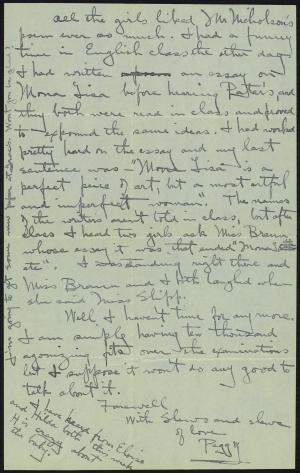 All the girls liked J M Nicholson's
poem ever so much. I had a funny
time in English class the other day
I had written an essay on
Mona Lisa before hearing Pater's, and
they both were read in class and proved
to expound the same ideas. I had worked
pretty hard on the essay and my last
sentence was - "Mona Lisa is a
perfect piece of art, but a most artful
and imperfect woman." The names
of the writers aren't told in class, but after
class I heard two girls ask Miss Braun
whose essay it was that ended "Mona Lisa
etc". I was standing right there and
Miss Braun and I both laughed when
she said Miss Shipp.
Well I haven't time for any more.
I am simply having ten thousand
agonizing fits over the examinations
but I suppose it won't do any good to
talk about it.
Farewell
With slews and slews
of love
Peggy
I have heard from Eloise
and Hilda both this week
He is crazy about
the baby!
I'm going to get some new pajamas. Won't you